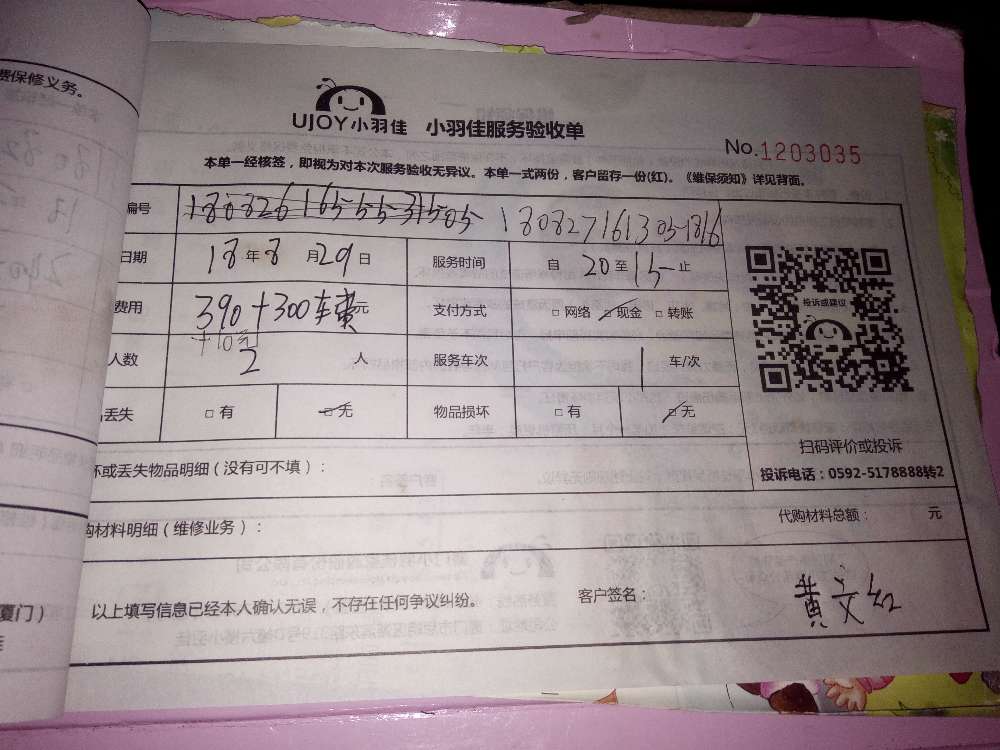 费保修义务。
UJOY小羽佳 小羽佳服务验收单
No.1203035
本单一经核签，即视为对本次服务验收无异议。本单一式两份，客户留存一份(红)。《维保须知》详见背面。
编号 180827161305-1816
日期 18年8月29日 服务时间 自20至15止
费用 390+300车费元 支付方式 □网络 □现金 □转账
+10元
人数 2人 服务车次 1车/次
丢失 □有 □无 物品损坏 □有 □无
投诉或建议
扫码评价或投诉
投诉电话：0592-5178888转2
坏或丢失物品明细（没有可不填）：
购材料明细（维修业务）： 代购材料总额： 元
以上填写信息已经本人确认无误，不存在任何争议纠纷。 客户签名： 黄文红
厦门）